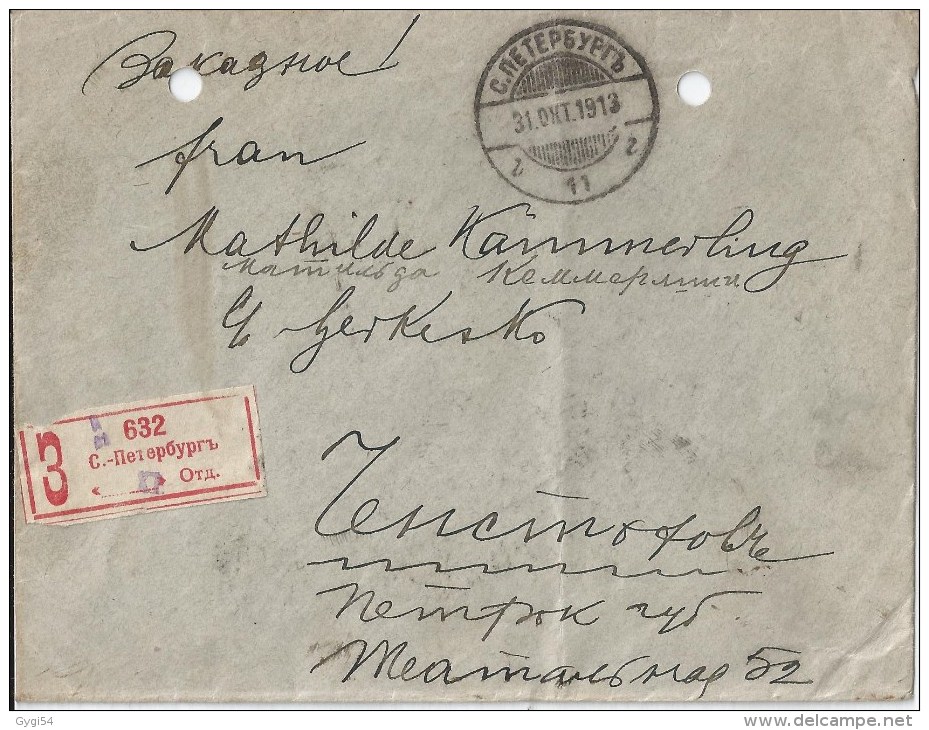 Заказное!
С.ПЕТЕРБУРГЪ
31.ОКТ.1913
2 2
11
Frau
Mathilde Kämmerling
Матильда Кеммерлинг
c/o Herkesko
З 632
С.-Петербургъ
Отд.
Ченстоховъ
Петрок губ
Театральная 52
Gygi54
delcampe.net